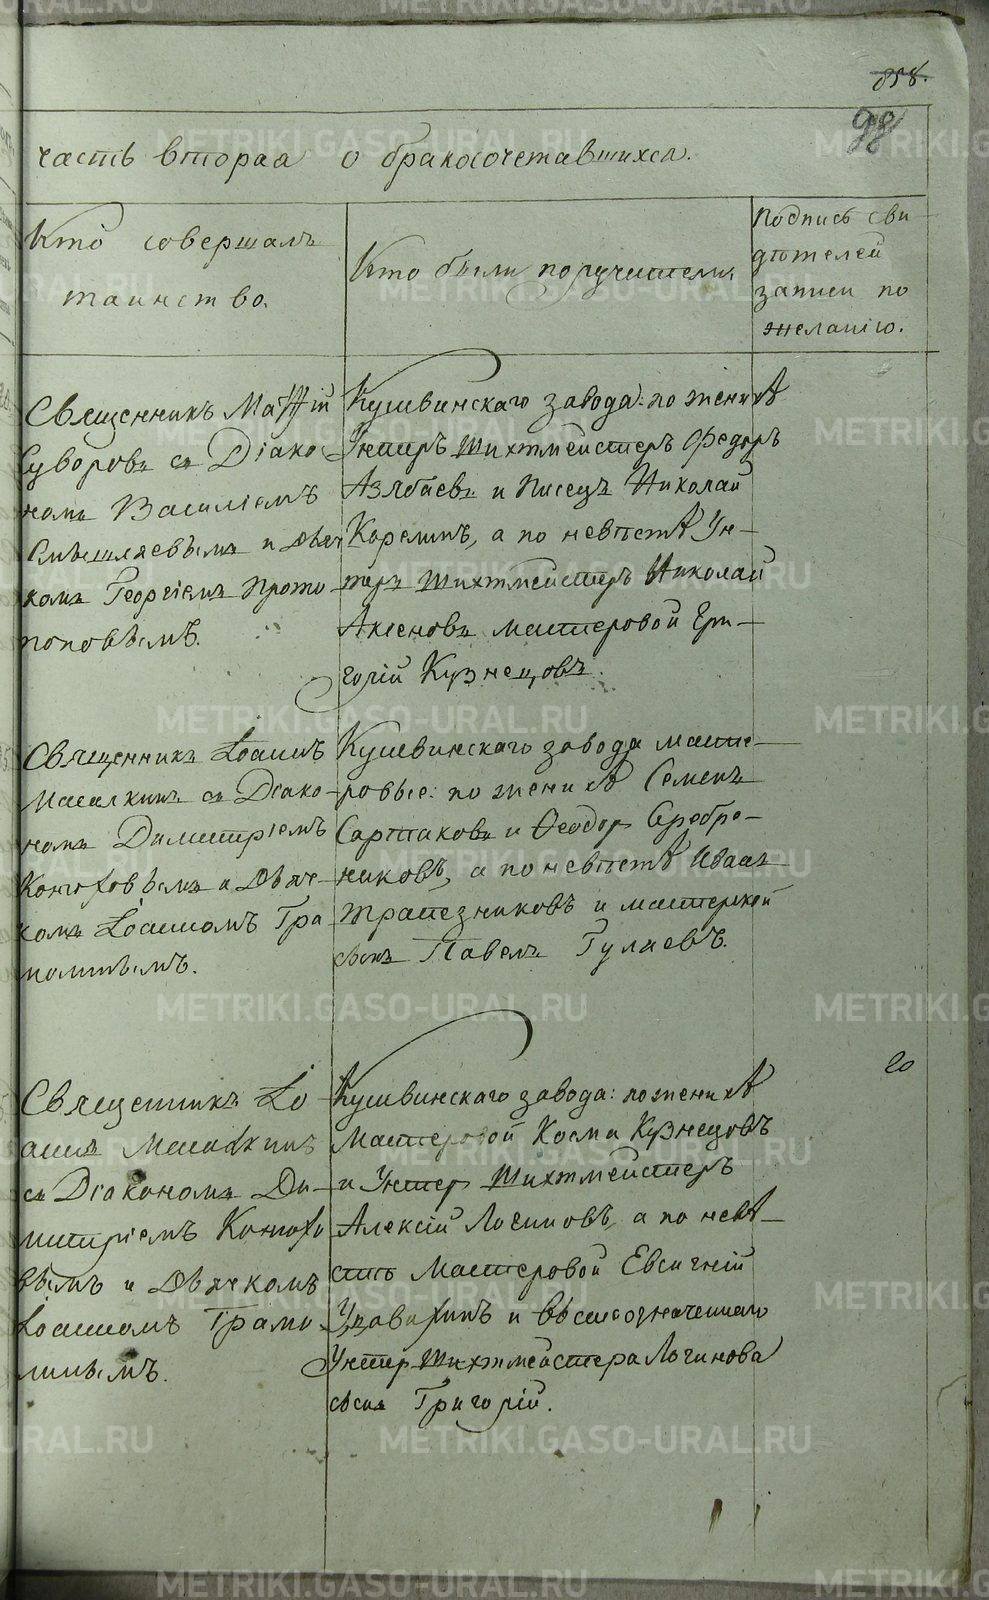 858.
98
часть вторая о бракосочетавшихся.
Кто совершалъ
таинство.
Кто были поручители.
Подпись сви
дѣтелей
записи по
желанію.
Священникъ Матѳій
Суворовъ съ Діако
номъ Василіемъ
Смышляевымъ и дьяч
комъ Георгіемъ Прото
поповымъ.
Кушвинскаго завода: по женихѣ
Унтеръ Шихтмейстеръ Федоръ
Азябаевъ и Писецъ Николай
Карелинъ, а по невѣстѣ Ун-
теръ Шихтмейстеръ Николай
Аксеновъ мастеровой Гри-
горій Кузнецовъ.
Священникъ Іоаннъ
Масалкинъ съ Діако-
номъ Димитріемъ
Конюховымъ и Дьяч-
комъ Іоанномъ Тра
Кушвинскаго завода масте-
ровые: по женихѣ Семенъ
Сартаковъ и Ѳеодор Серебре-
никовъ, а по невѣстѣ Иванъ
Трапезниковъ и мастерской
сынъ Павелъ Гулаевъ.
Священникъ Іо
аннъ Масалкинъ
съ Діакономъ Ди-
митріемъ Конюхо
вымъ и Дьячкомъ
Іоанномъ
Кушвинскаго завода: по женихѣ
Мастеровой Косма Кузнецовъ
и Унтер Шихтмейстеръ
Алексій Логиновъ, а по невѣ-
стѣ Мастеровой Евсигній
и вышеозначеннаго
Унтер Шихтмейстера Логинова
сынъ Григорій.
20
METRIKI.GASO-URAL.RU